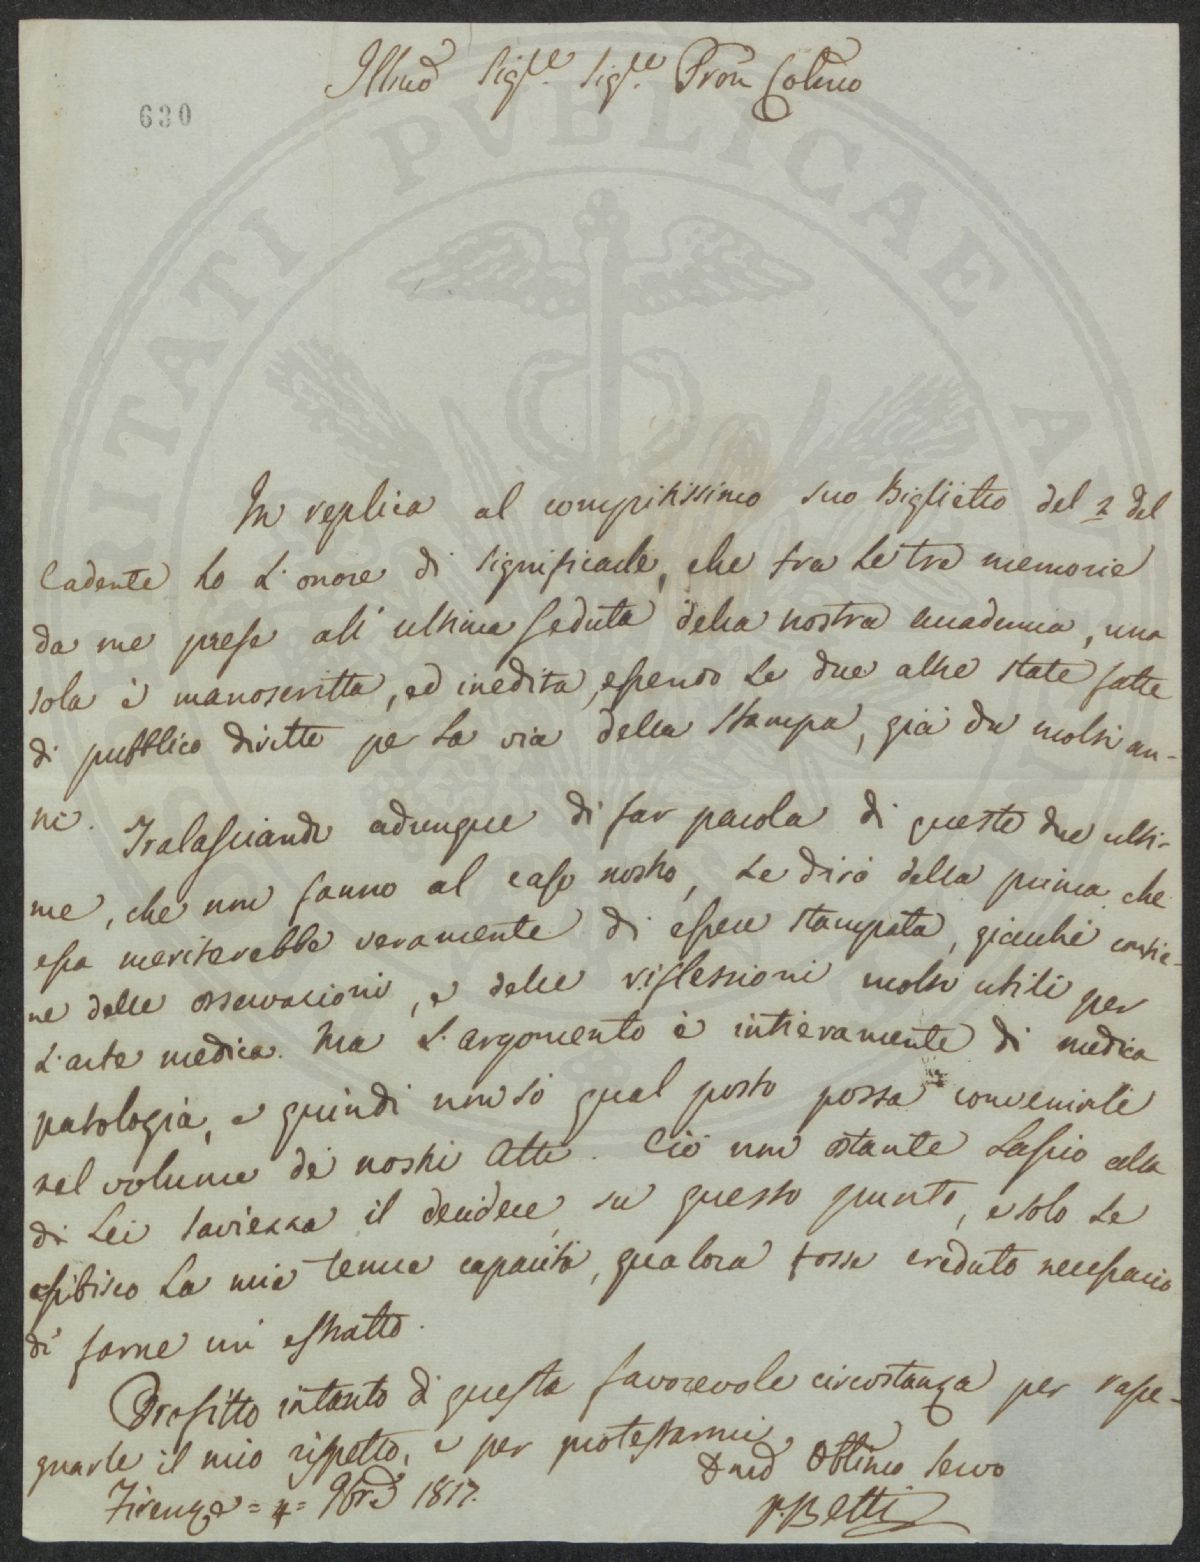 Illmo Sigre. Sigre. Pron Colmo
630
In replica al compitissimo suo Biglietto del 2 del
Cadente ho L'onore di significarle, che tra Le tre memorie
da me prese all'ultima seduta della nostra Accademia, una
sola è manoscritta, ed inedita, essendo Le due altre state fatte
di pubblico diritto per La via della Stampa, già da molti an-
ni. Tralasciando adunque di far parola di queste due ulti-
me, che non fanno al caso nostro, Le dirò della prima che
essa meriterebbe veramente di essere stampata, giacché contie-
ne delle osservazioni, e delle riflessioni molto utili per
L'arte medica. Ma L'argomento è intieramente di medica
patologia, e quindi non sò qual posto possa convenirle
nel volume de nostri Atti. Ciò non ostante Lascio alla
di Lei saviezza il decidere su questo punto, e solo Le
esibisco La mia tenue capacità, qualora fosse creduto necessario
di farne un estratto.
Profitto intanto di questa favorevole circostanza per rasse-
gnarle il mio rispetto, e per protestarmi
Firenze = 4 = 9bre 1817.
Obblmo Servo
P. Betti
SANITATI PVBLICAE